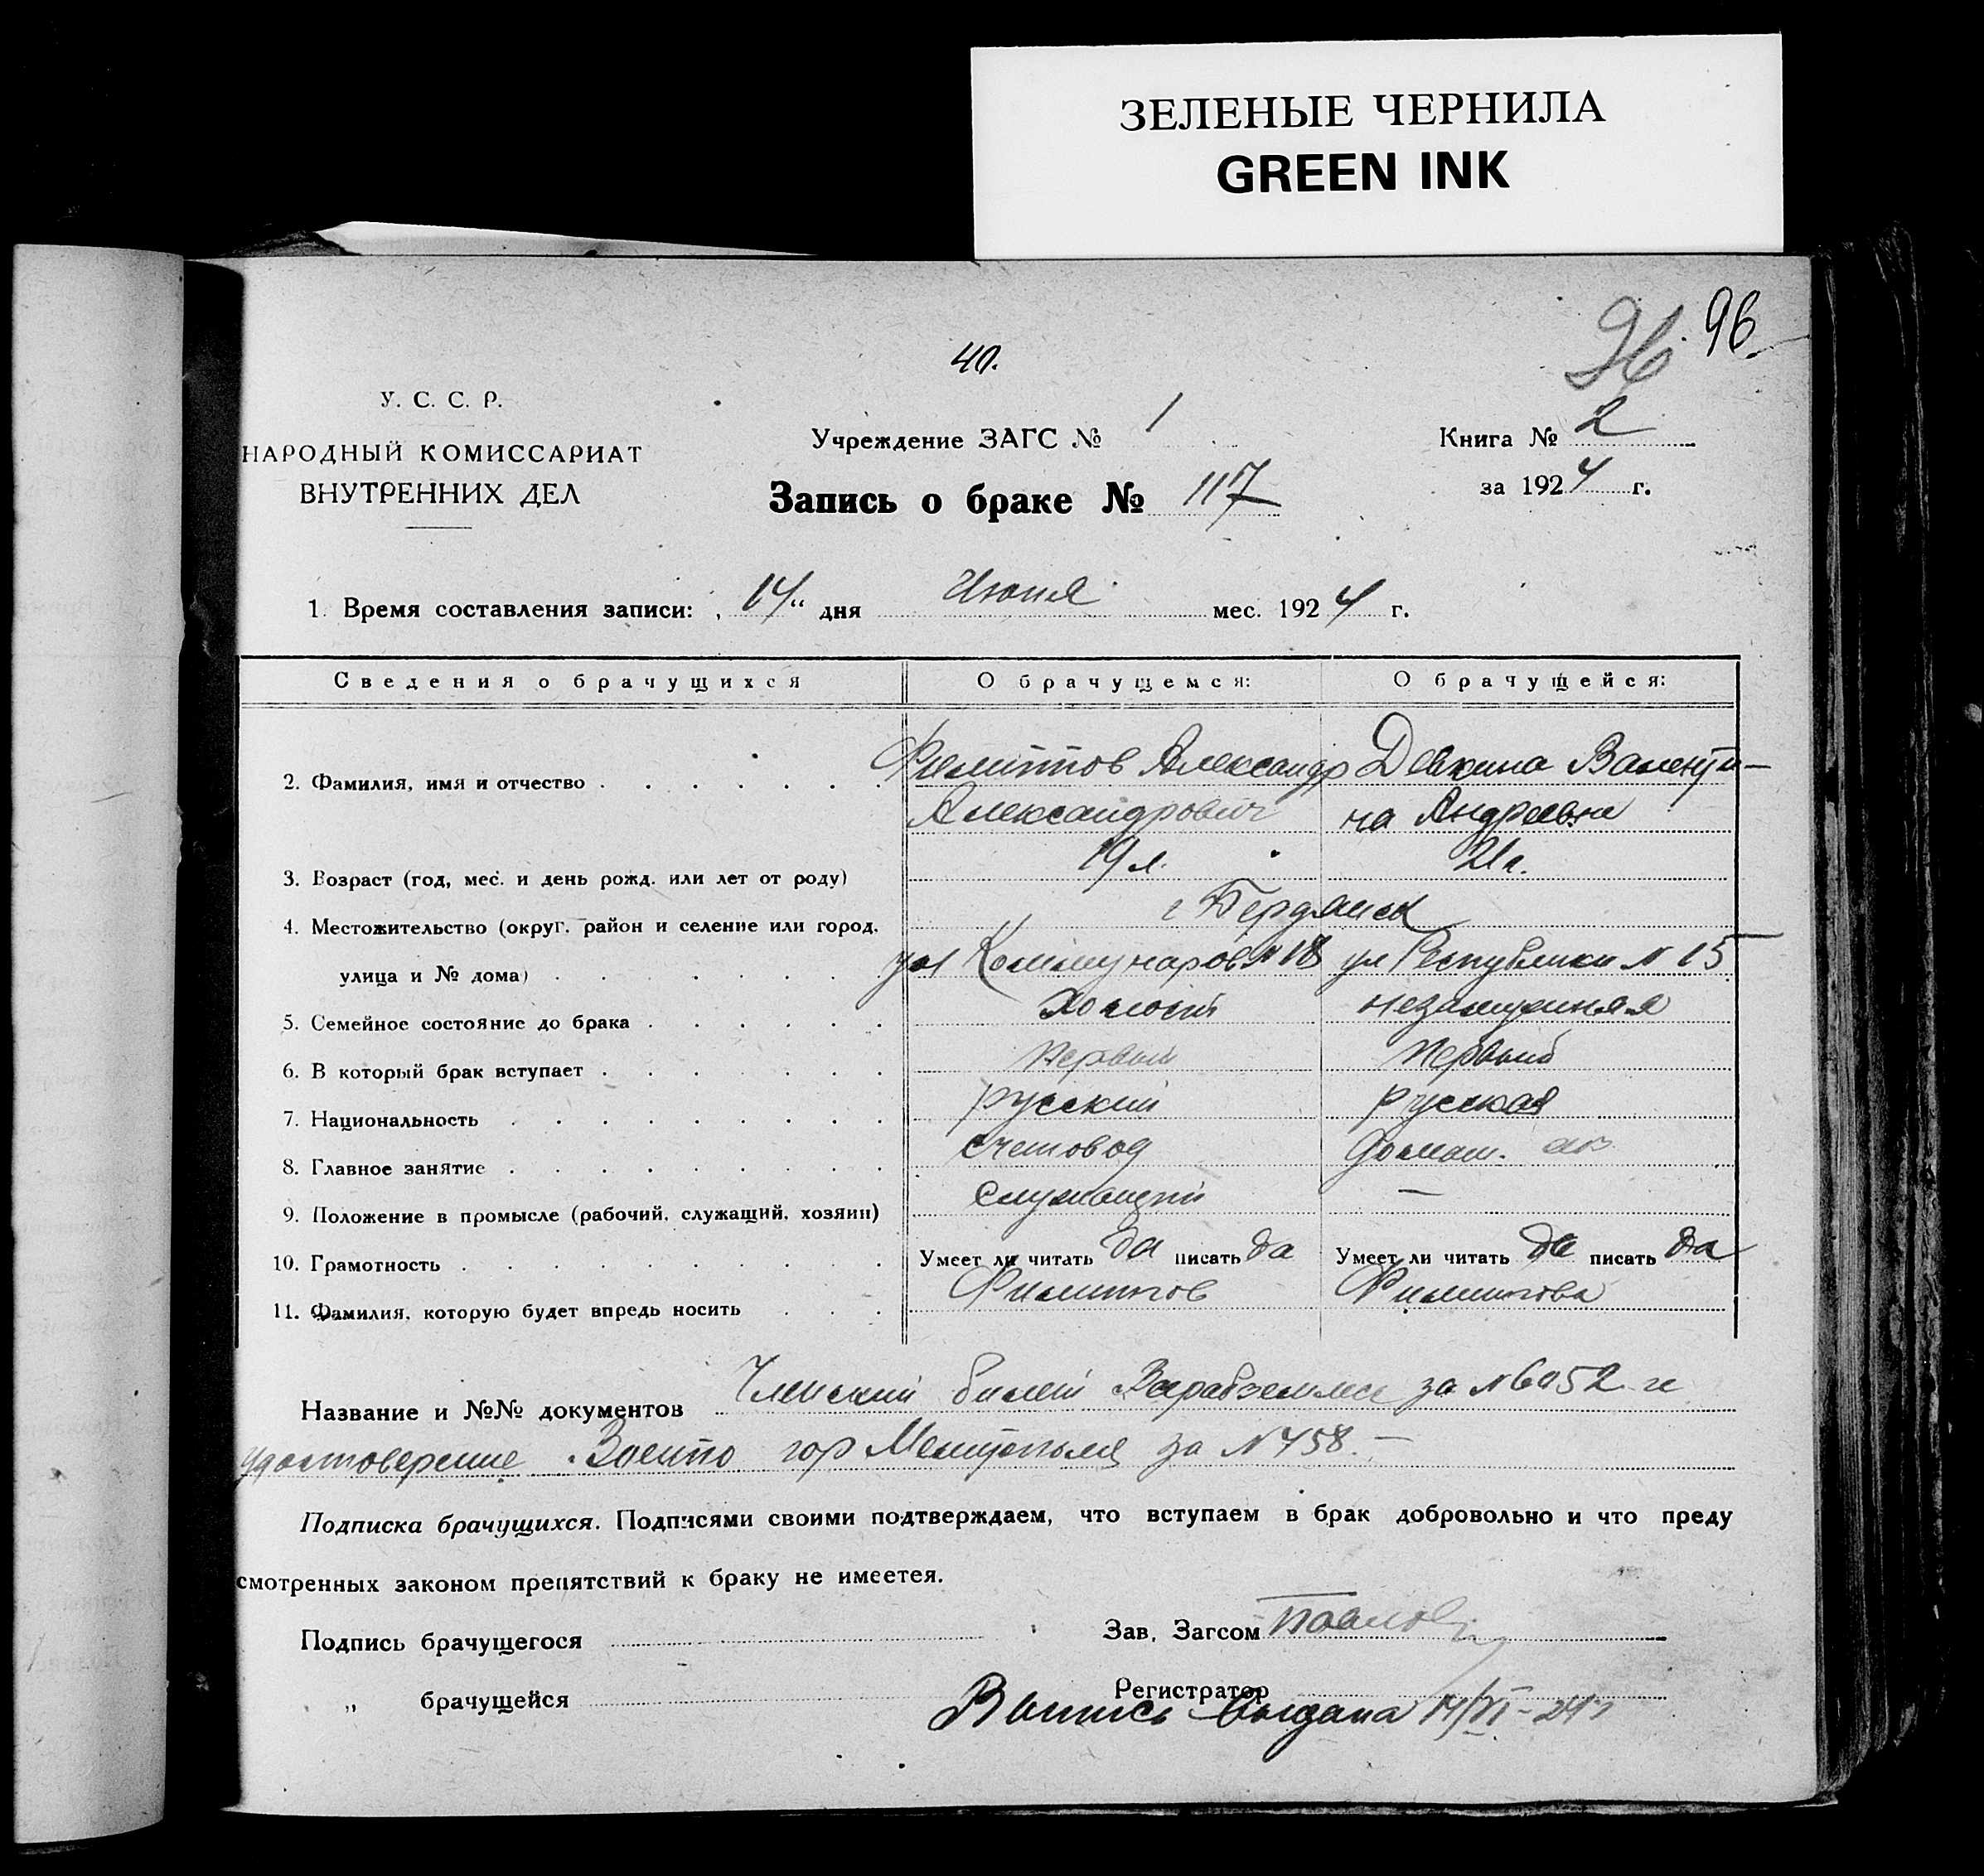 ЗЕЛЕНЫЕ ЧЕРНИЛА
GREEN INK
96 96
40.
У. С. С. Р.
НАРОДНЫЙ КОМИССАРИАТ
ВНУТРЕННИХ ДЕЛ
Учреждение ЗАГС № 1
Запись о браке № 117
Книга № 2
за 1924 г.
1. Время составления записи: „14“ дня Июня мес. 1924 г.
Сведения о брачущихся О брачущемся: О брачущейся:
2. Фамилия, имя и отчество Филиппов Александр Девкина Валенти-
Александрович на Андреевна
3. Возраст (год, мес. и день рожд. или лет от роду) 19 л. 21 г.
4. Местожительство (округ, район и селение или город, г Бердянск
улица и № дома) ул Коммунаров № 18 ул Республики № 15
5. Семейное состояние до брака Холост незамужняя
6. В который брак вступает Первый Первый
7. Национальность русский русская
8. Главное занятие счетовод домаш.
9. Положение в промысле (рабочий, служащий, хозяин) Служащий —
10. Грамотность Умеет ли читать да писать да Умеет ли читать да писать да
11. Фамилия, которую будет впредь носить Филиппов Филиппова
Название и №№ документов Членский билет за № 6052 и
удостоверение гор Мелитополя за № 458. —
Подписка брачущихся. Подписями своими подтверждаем, что вступаем в брак добровольно и что преду
смотренных законом препятствий к браку не имеется.
Подпись брачущегося
Зав. Загсом
„ брачущейся
Регистратор
Выпись выдана 14/VI-24 г